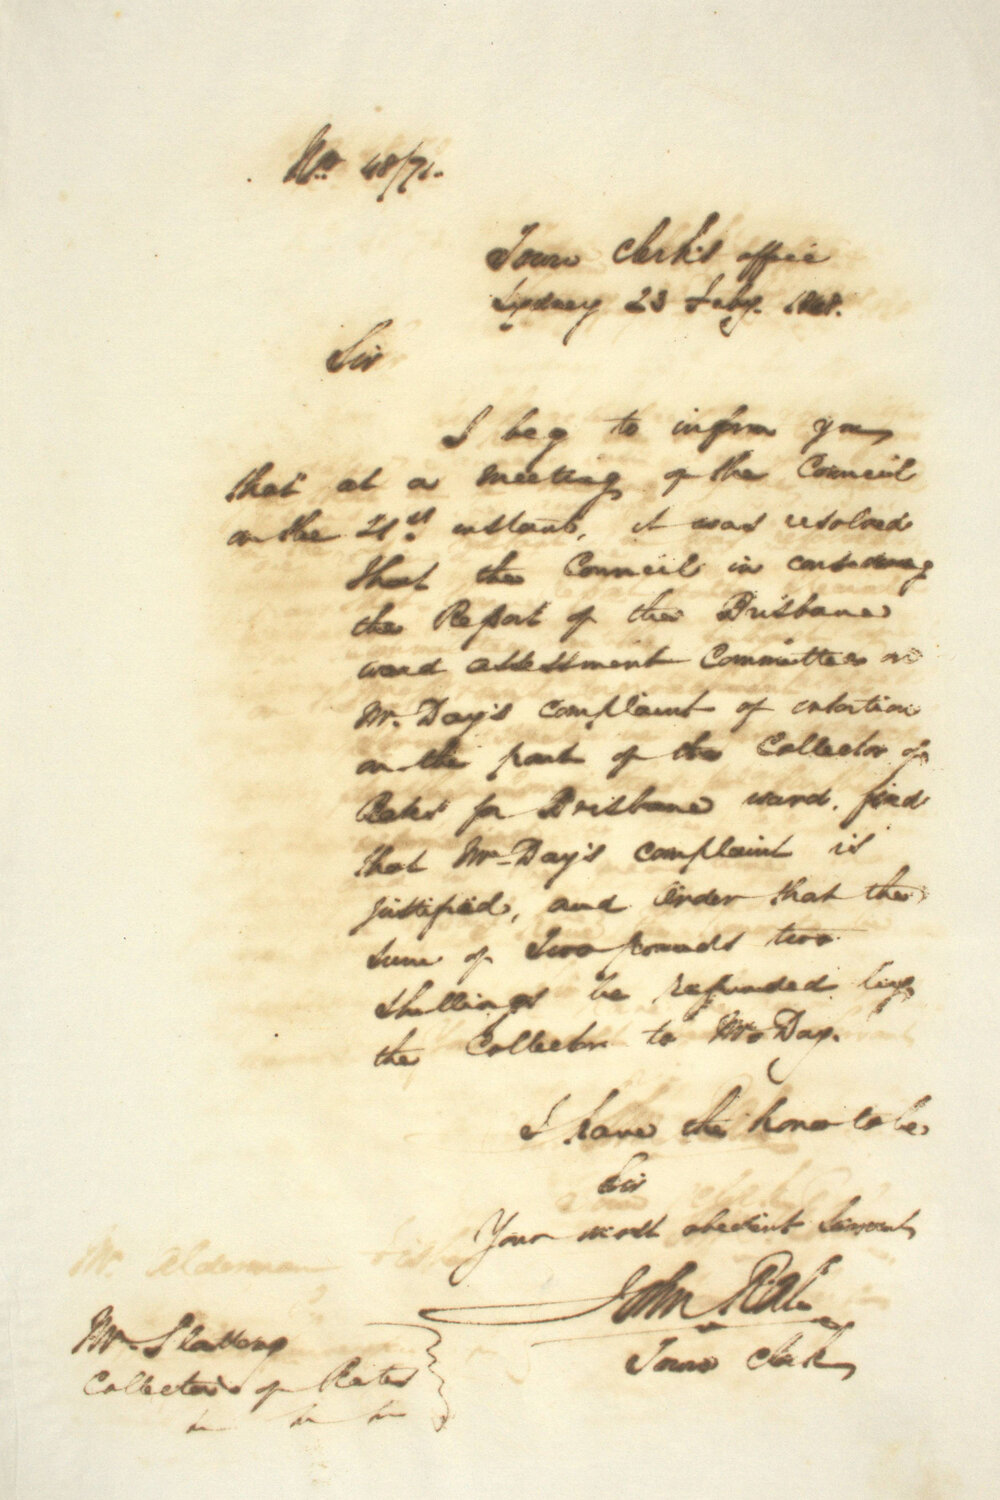 No. 48/71.
Town Clerk's office
Sydney 23 Feby. 1848.
Sir
I beg to inform you
that at a meeting of the Council
on the 21st instant, it was resolved
that the Council in considering
the Report of the Brisbane
ward assessment Committee on
Mr. Day's complaint of extortion
on the part of the Collector of
Rates for Brisbane ward, find
that Mr Day's complaint is
justified, and Order that the
sum of Two pounds two
shillings be refunded by
the Collector to Mr Day.
I have the honor to be
Sir
Your most obedient Servant
John
Town Clerk
Mr Slattery
Collector of Rates